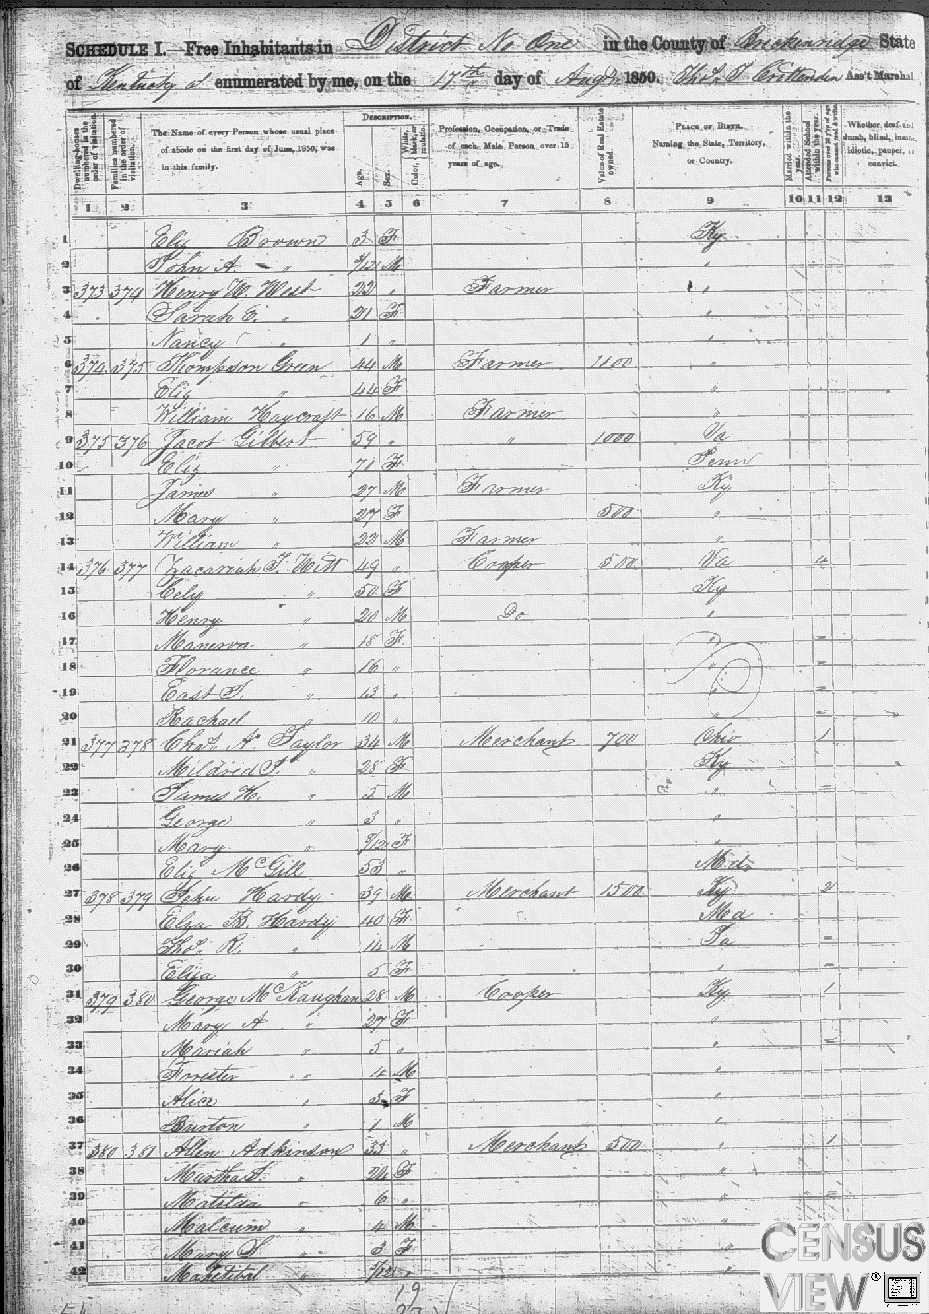 SCHEDULE I.—Free Inhabitants in District No One in the County of Breckenridge State
of Kentucky enumerated by me, on the 17th day of Augt 1850. Thos. J. Crittenden Ass't Marshal
Dwelling-houses numbered in the order of visitation.
Families numbered in the order of visitation.
The Name of every Person whose usual place of abode on the first day of June, 1850, was in this family.
DESCRIPTION.
Age.
Sex.
Color, White, black, or mulatto.
Profession, Occupation, or Trade of each Male Person over 15 years of age.
Value of Real Estate owned.
PLACE OF BIRTH. Naming the State, Territory, or Country.
Married within the year.
Attended School within the year.
Persons over 20 y'rs of age who cannot read & write.
Whether deaf and dumb, blind, insane, idiotic, pauper, or convict.
1 2 3 4 5 6 7 8 9 10 11 12 13
1 Eliz Brown 3 F Ky
2 John A. " /12 M "
3 373 374 Henry W. West 22 " Farmer "
4 Sarah E. " 21 F "
5 Nancy " 1 " "
6 374 375 Thompson Green 44 M Farmer 1100 "
7 Eliz " 44 F "
8 William Haycraft 16 M Farmer "
9 375 376 Jacob Gilbert 59 " " 1000 Va
10 Eliz " 71 F Penn
11 James " 27 M Farmer Ky
12 Mary " 27 F 500 "
13 William " 22 M Farmer "
14 376 377 Zacariah T. Witt 49 " Cooper 500 Va
15 Cely " 50 F Ky
16 Henry " 20 M Do "
17 Manerva " 18 F "
18 Florance " 16 " "
19 East T. " 13 " "
20 Rachael " 10 " "
21 377 378 Chas. A. Taylor 34 M Merchant 700 Ohio 1
22 Mildrid J. " 28 F Ky
22 James H. " 5 M "
24 George " 3 " "
25 Mary " /12 F "
26 Eliz McGill 53 "
27 378 379 John Hardy 39 M Merchant 1500 Ky 2
28 Elza B. Hardy 40 F Md
29 Thos. R. " 14 M
30 Eliza " 5 F "
31 379 380 George McKaughan 28 M Cooper Ky 1
32 Mary A " 27 F "
33 Mariah " 5 " "
34 Forester " 4 M "
35 Alice " 3 F "
36 Burton " 1 M "
37 380 381 Allen Adkinson 33 " Merchant 500 " 1
38 Martha J. " 24 F "
39 Matilda " 6 " "
40 Malcum " 4 M "
41 Mary S " 3 F "
42 Mahetibal " /12 "
19
CENSUS
VIEW®